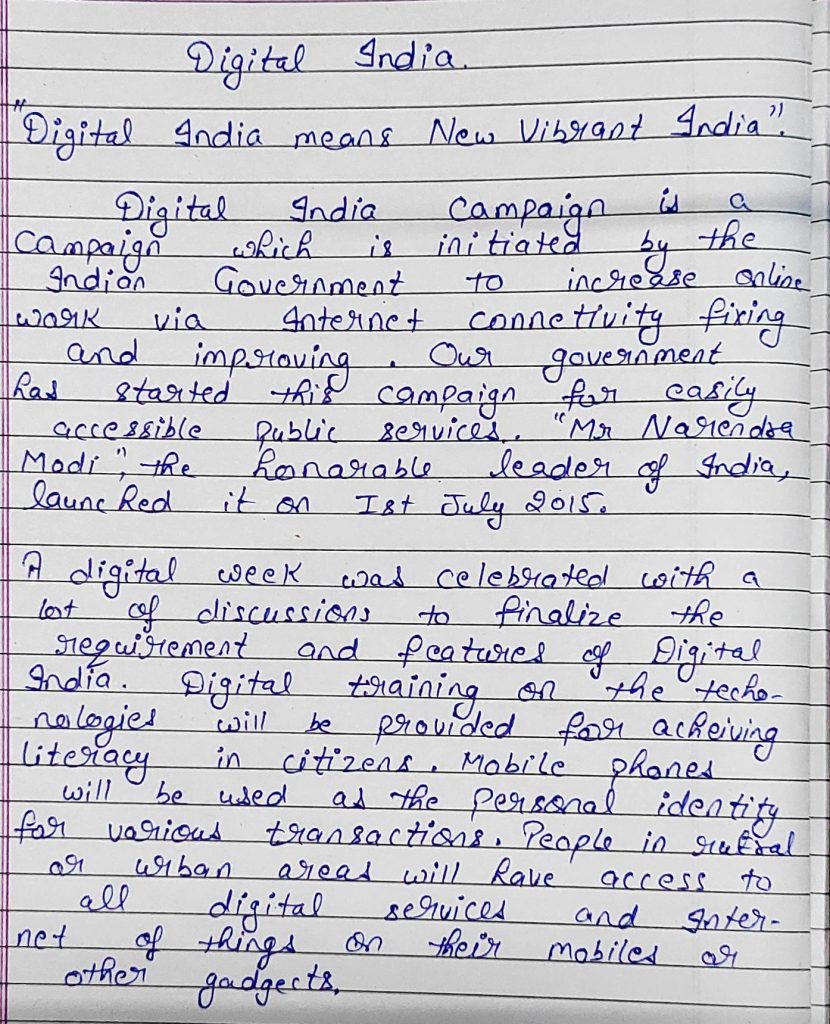 Digital India.
"Digital India means New Vibrant India".
Digital India Campaign is a
Campaign which is initiated by the
Indian Government to increase online
work via Internet connetivity fixing
and improving. Our government
has started this campaign for easily
accessible public services. "Mr Narendra
Modi", the honarable leader of India,
launched it on Ist July 2015.
A digital week was celebrated with a
lot of discussions to finalize the
requirement and features of Digital
India. Digital training on the techo-
nologies will be provided for acheiving
literacy in citizens. Mobile phones
will be used as the personal identity
for various transactions. People in
or urban areas will have access to
all digital services and Inter-
net of things on their mobiles or
other gadgects.